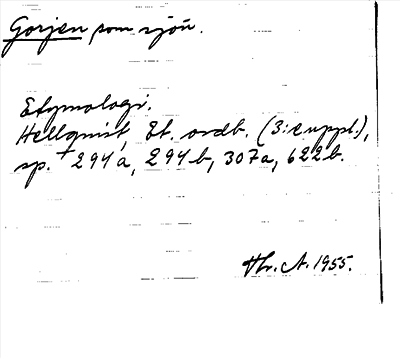 Gorjen som sjön.
Etymologi.
Hellquist, Et. ordb. (3:e uppl.),
sp. 294a, 294b, 307a, 622b.
Hr. A. 1955.